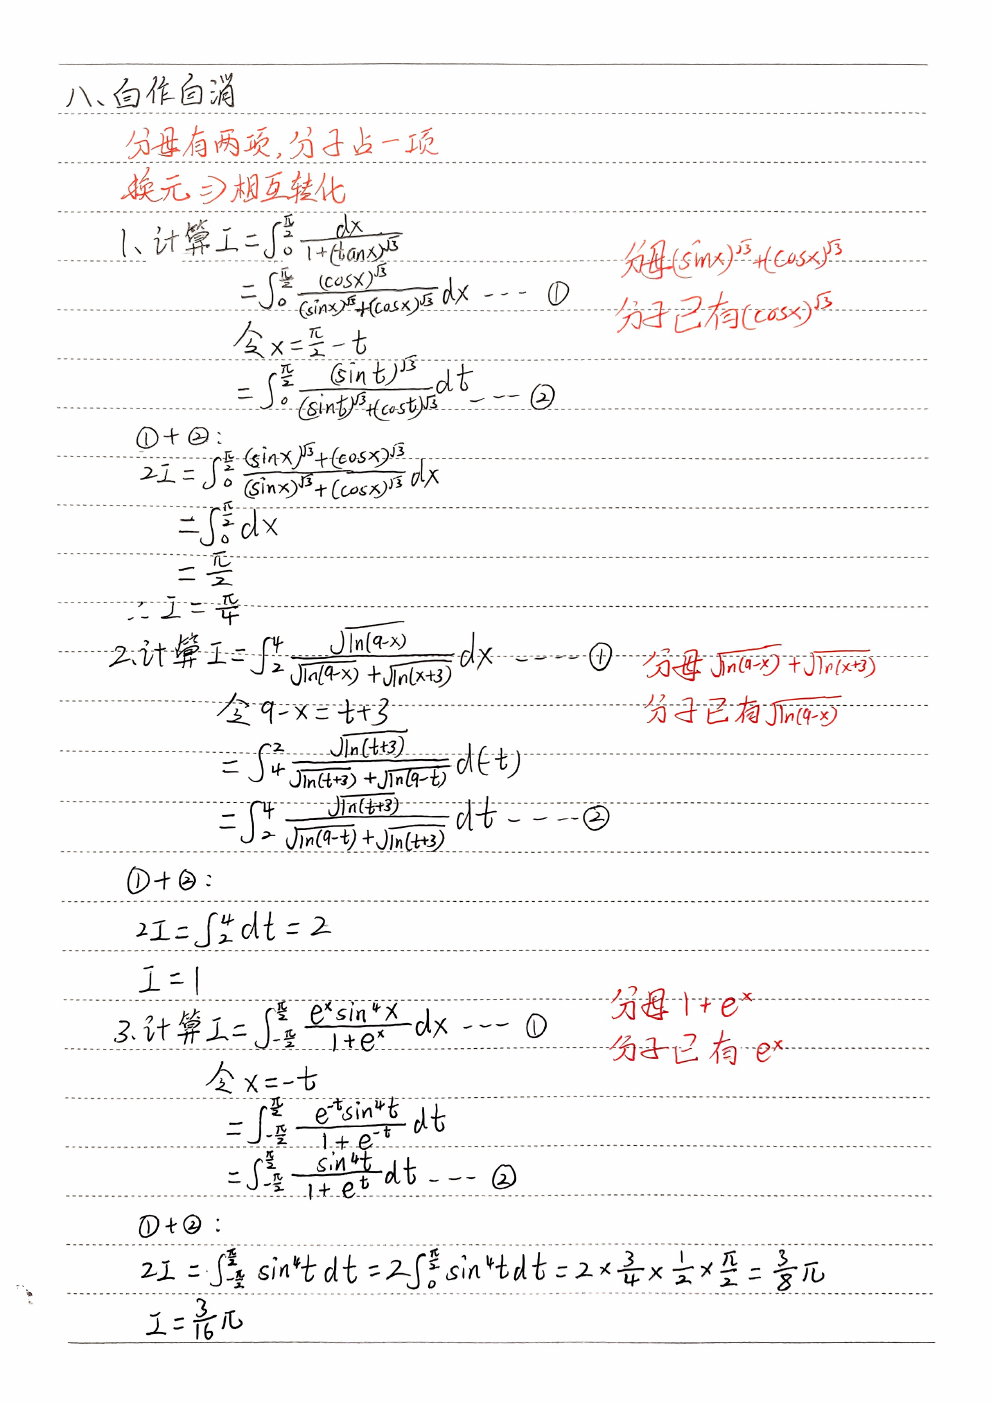 八、自作自消
分母有两项,分子占一项
换元 => 相互转化
1、计算 I = ∫_0^{π/2} dx/(1+(tanx)^{√3})
= ∫_0^{π/2} (cosx)^{√3}/((sinx)^{√3}+(cosx)^{√3}) dx --- ①
分母(sinx)^{√3}+(cosx)^{√3}
分子已有(cosx)^{√3}
令 x = π/2 - t
= ∫_0^{π/2} (sint)^{√3}/((sint)^{√3}+(cost)^{√3}) dt ---- ②
①+②:
2I = ∫_0^{π/2} ((sinx)^{√3}+(cosx)^{√3})/((sinx)^{√3}+(cosx)^{√3}) dx
= ∫_0^{π/2} dx
= π/2
∴ I = π/4
2.计算 I = ∫_2^4 √ln(9-x)/(√ln(9-x)+√ln(x+3)) dx ----- ①
分母 √ln(9-x)+√ln(x+3)
分子已有√ln(9-x)
令 9-x = t+3
= ∫_4^2 √ln(t+3)/(√ln(t+3)+√ln(9-t)) d(-t)
= ∫_2^4 √ln(t+3)/(√ln(9-t)+√ln(t+3)) dt ----- ②
①+②:
2I = ∫_2^4 dt = 2
I = 1
3.计算 I = ∫_{-π/2}^{π/2} e^x sin^4x/(1+e^x) dx --- ①
分母 1+e^x
分子已有 e^x
令 x = -t
= ∫_{-π/2}^{π/2} e^{-t}sin^4t/(1+e^{-t}) dt
= ∫_{-π/2}^{π/2} sin^4t/(1+e^t) dt --- ②
①+②:
2I = ∫_{-π/2}^{π/2} sin^4t dt = 2∫_0^{π/2} sin^4t dt = 2×3/4×1/2×π/2 = 3/8 π
I = 3/16 π